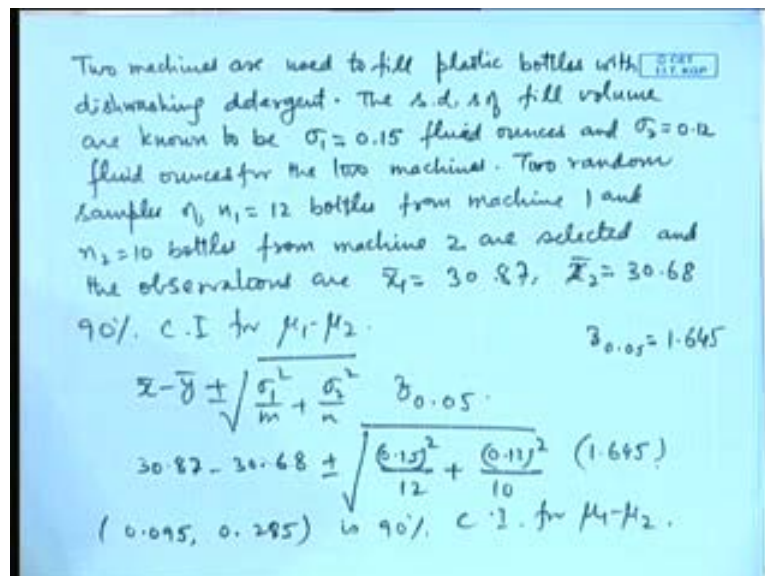 Two machines are used to fill plastic bottles with © CET I.I.T. KGP
dishwashing detergent. The s.d.s of fill volume
are known to be σ₁ = 0.15 fluid ounces and σ₂ = 0.12
fluid ounces for the two machines. Two random
samples of n₁ = 12 bottles from machine 1 and
n₂ = 10 bottles from machine 2 are selected and
the observations are x̄₁ = 30.87, x̄₂ = 30.68
90% C.I for μ₁-μ₂. z₀.₀₅ = 1.645
x̄-ȳ ± √(σ₁²/m + σ₂²/n) z₀.₀₅.
30.87 - 30.68 ± √((0.15)²/12 + (0.12)²/10) (1.645)
(0.095, 0.285) is 90% C.I. for μ₁-μ₂.